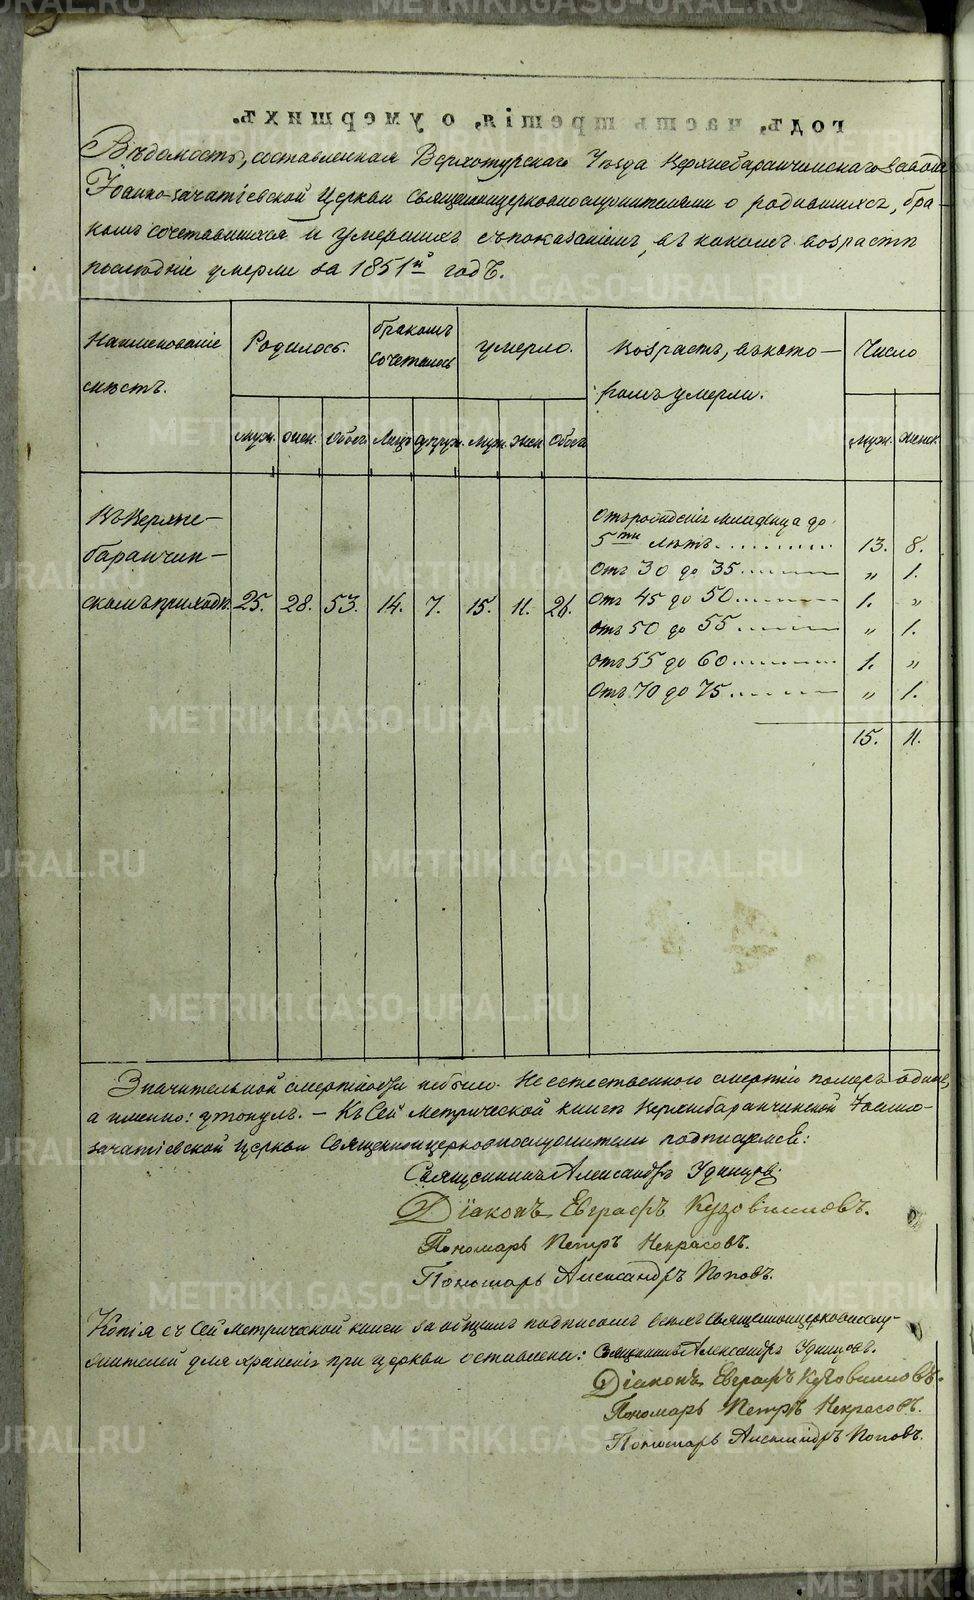 годъ, часть третія, о умершихъ.
Вѣдомость, составленная Верхотурскаго Уѣзда Верхнебаранчинскаго завода
Іоанно-зачатіевской Церкви Священноцерковнослужителями о родившихся, бра-
комъ сочетавшихся и умершихъ съ показаніемъ, въ какомъ возрастѣ
послѣдніе умерли за 1851й годъ.
Наименованіе мѣстъ. Родилось. бракомъ сочеталось умерло. Возрастъ, въ кото- ромъ умерли. Число
муж. жен. Обоег. Лицъ супруж. Муж. Жен. Обоег. Муж. Женск.
Въ Верхне-
баранчин-
скомъ приходѣ. 25. 28. 53. 14. 7. 15. 11. 26.
Отъ рожденія младенца до
5ти лѣтъ 13. 8.
Отъ 30 до 35 „ 1.
Отъ 45 до 50 1. „
Отъ 50 до 55 „ 1.
Отъ 55 до 60 1. „
Отъ 70 до 75 „ 1.
15. 11.
Значительной смертности небыло. Неестественною смертію померъ одинъ,
а именно: утонулъ. – Къ Сей Метрической книгѣ Верхнебаранчинской Іоанно-
зачатіевской Церкви Священноцерковнослужители подписуемся:
Священникъ Александръ Удинцов.
Діаконъ Евграфъ Кузовниковъ.
Пономарь Петръ Некрасовъ.
Пономарь Александръ Поповъ.
Копія съ Сей Метрической книги за общимъ подписомъ всѣхъ священноцерковнослу-
жителей для храненія при церкви оставлена: Священникъ Александръ Удинцовъ.
Діаконъ Евграфъ Кузовниковъ.
Пономарь Петръ Некрасовъ.
Пономарь Александръ Поповъ.
METRIKI.GASO-URAL.RU